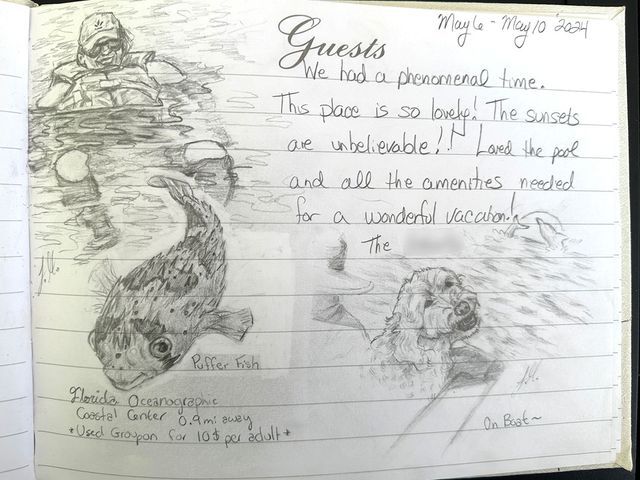 Guests
May 6 - May 10 2024
We had a phenomenal time.
This place is so lovely! The sunsets
are unbelievable!! Loved the pool
and all the amenities needed
for a wonderful vacation!
The
Puffer Fish
Florida Oceanographic
Coastal Center 0.9 mi away
*Used Groupon for 10$ per adult*
On Boat~